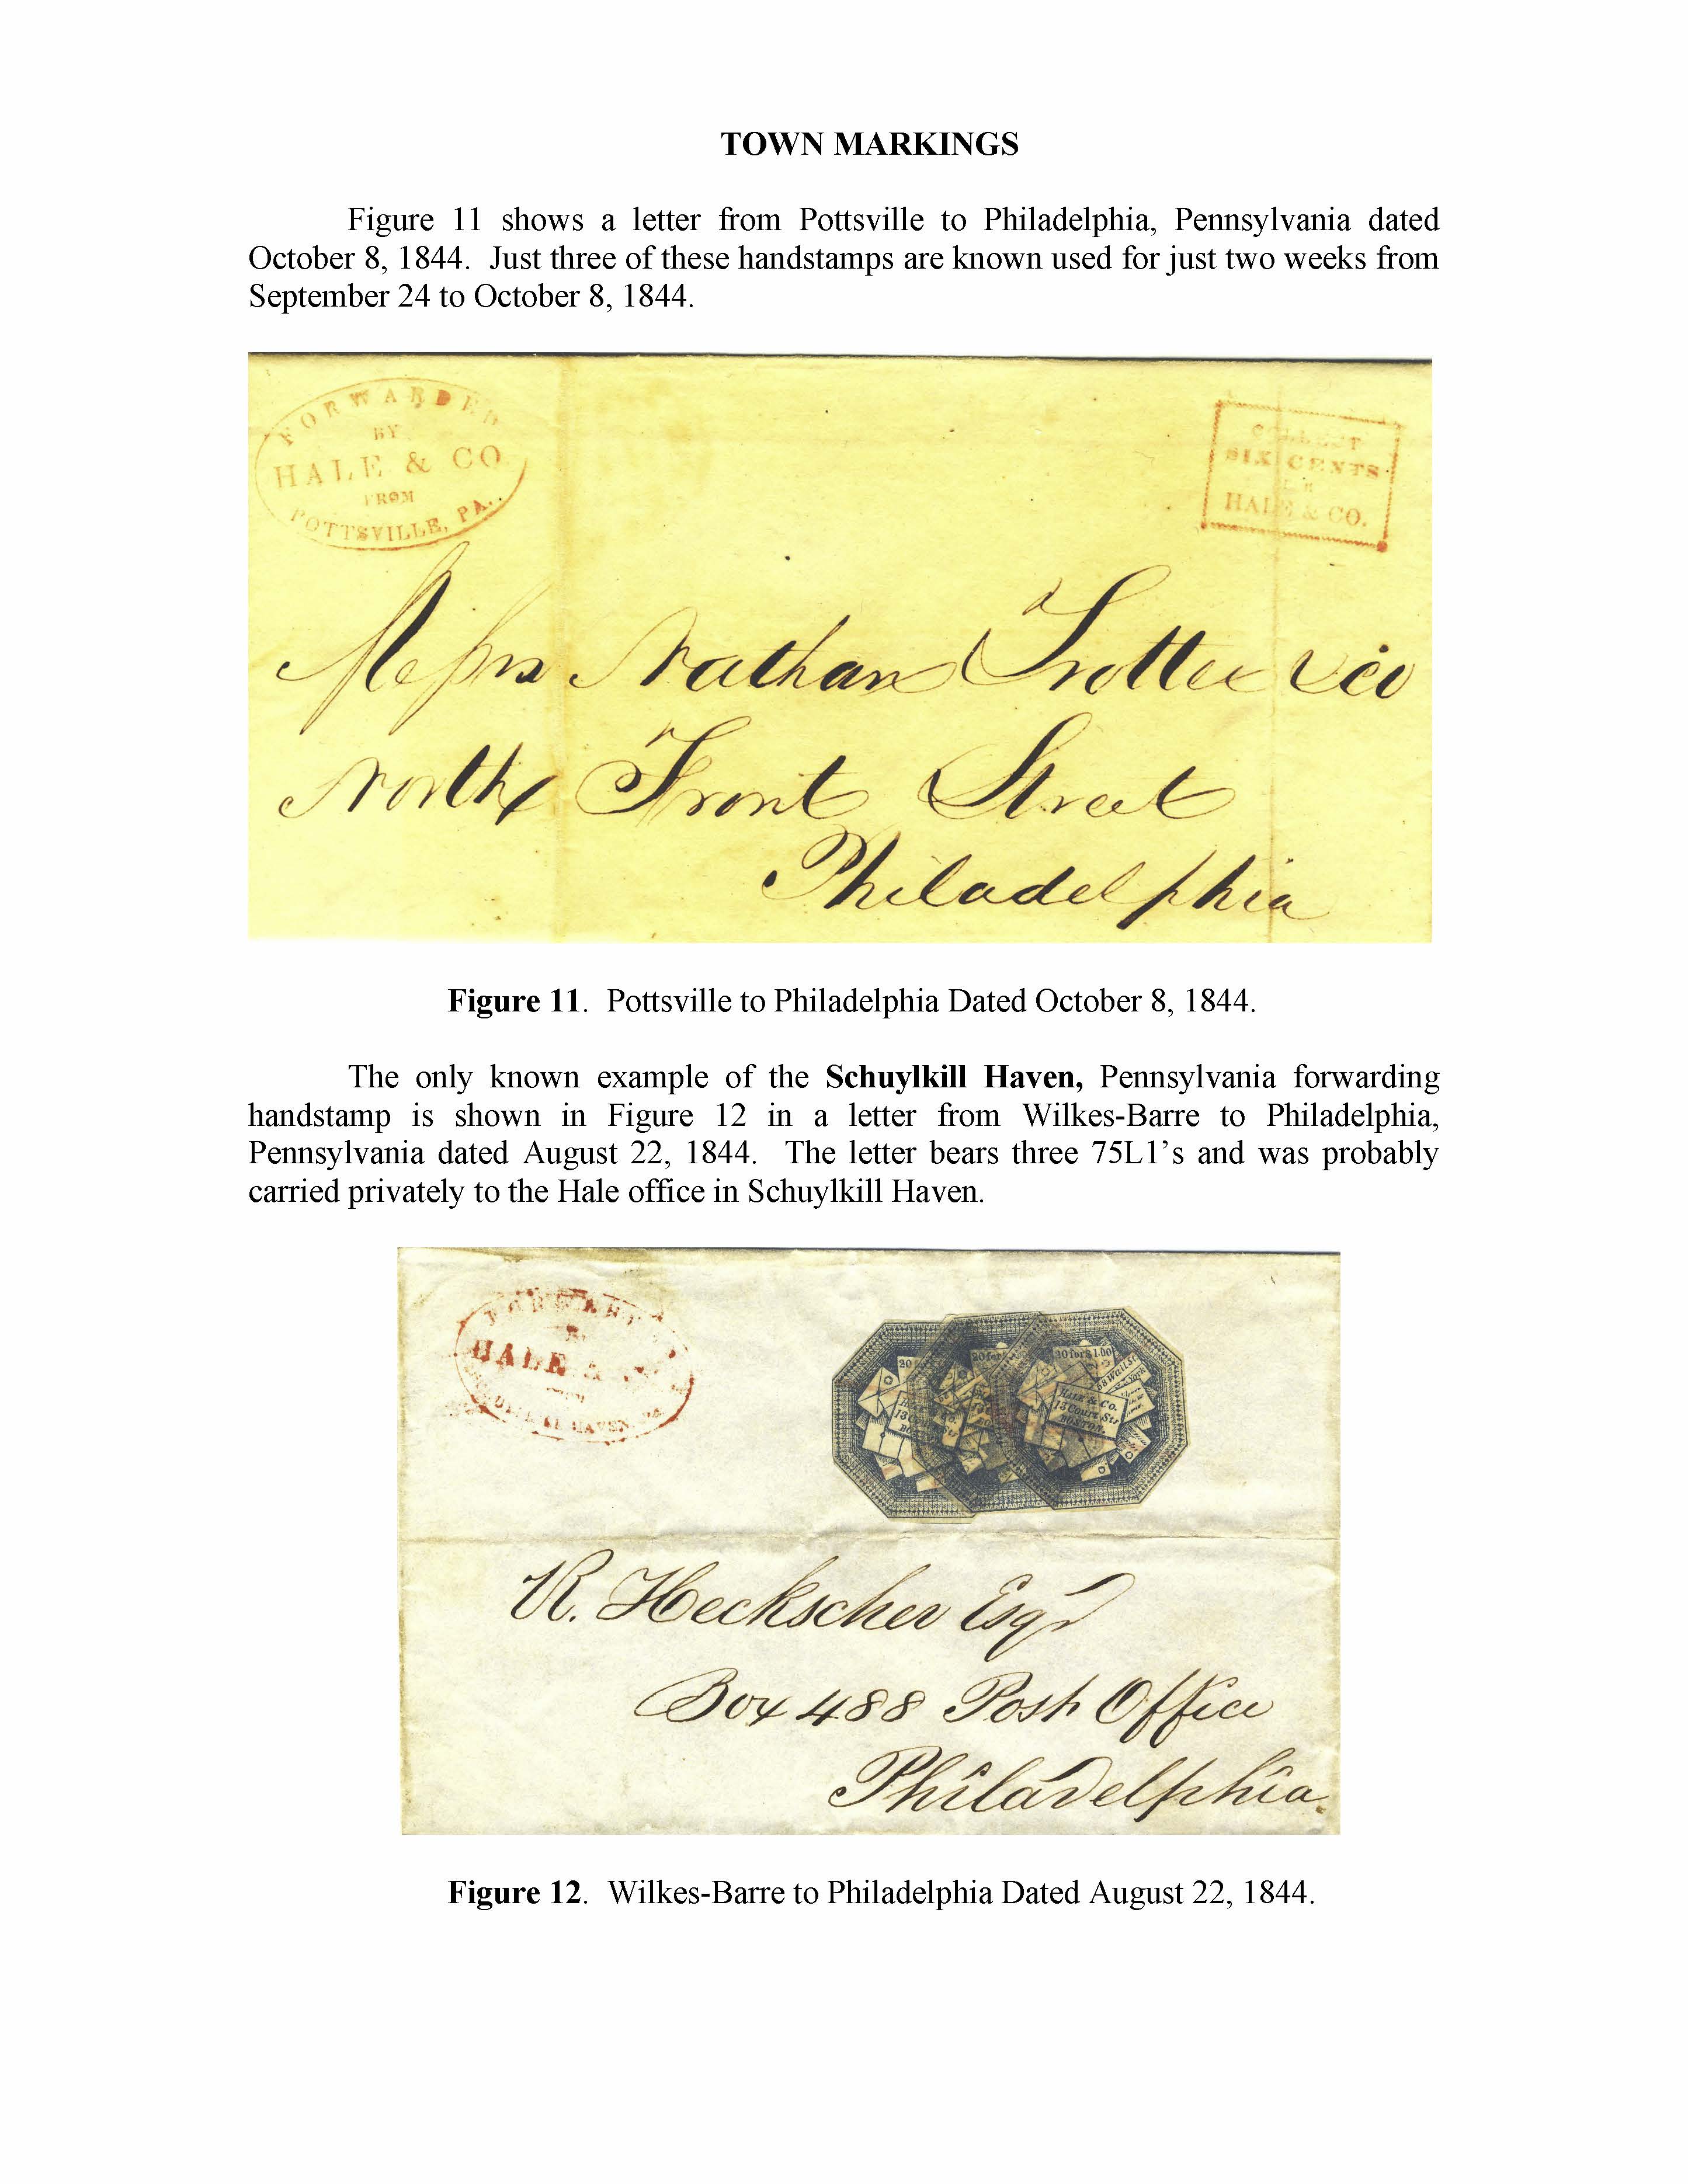 TOWN MARKINGS
Figure 11 shows a letter from Pottsville to Philadelphia, Pennsylvania dated
October 8, 1844. Just three of these handstamps are known used for just two weeks from
September 24 to October 8, 1844.
FORWARDED
BY
HALE & CO
FROM
POTTSVILLE, PA.
COLLECT
SIX CENTS
HALE & CO.
Messrs Nathan Trotter & Co
North Front Street
Philadelphia
Figure 11. Pottsville to Philadelphia Dated October 8, 1844.
The only known example of the Schuylkill Haven, Pennsylvania forwarding
handstamp is shown in Figure 12 in a letter from Wilkes-Barre to Philadelphia,
Pennsylvania dated August 22, 1844. The letter bears three 75L1's and was probably
carried privately to the Hale office in Schuylkill Haven.
HALE &
HAVEN, PA
20 for $1.00
HALE & Co.
13 Court Str
BOSTON.
R. Heckscher Esqr
Box 488 Post Office
Philadelphia
Figure 12. Wilkes-Barre to Philadelphia Dated August 22, 1844.